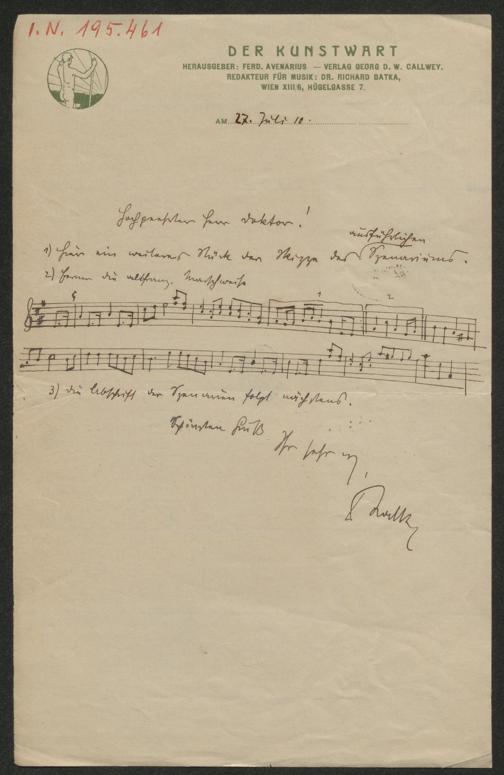 I.N. 195.461
DER KUNSTWART
HERAUSGEBER: FERD. AVENARIUS — VERLAG GEORG D. W. CALLWEY.
REDAKTEUR FÜR MUSIK: DR. RICHARD BATKA,
WIEN XIII/6, HÜGELGASSE 7.
AM 27. Juli 10.
Hochgeehrter Herr Doktor!
ausführlichen
1) Hier ein weiteres Stück der Skizze des Szenariums.
2) Ferner die altfranz. Marschweise
1 2
3) die Abschrift der folgt nächstens.
Schönsten Gruß
Ihr sehr
RBatka